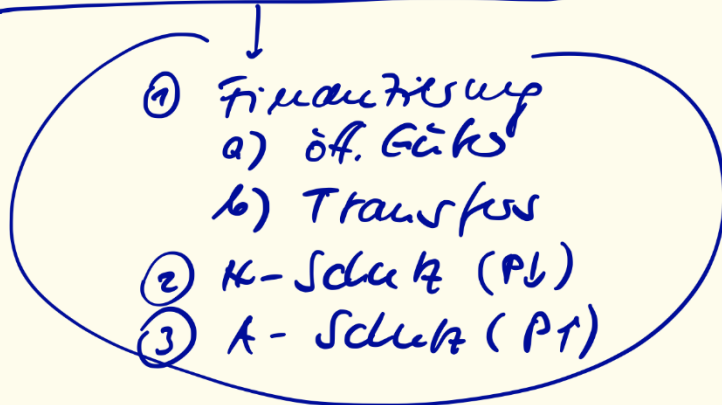 ① Finanzierung
a) öff. Güter
b) Transfers
② K-Schutz (P↓)
③ A-Schutz (P↑)